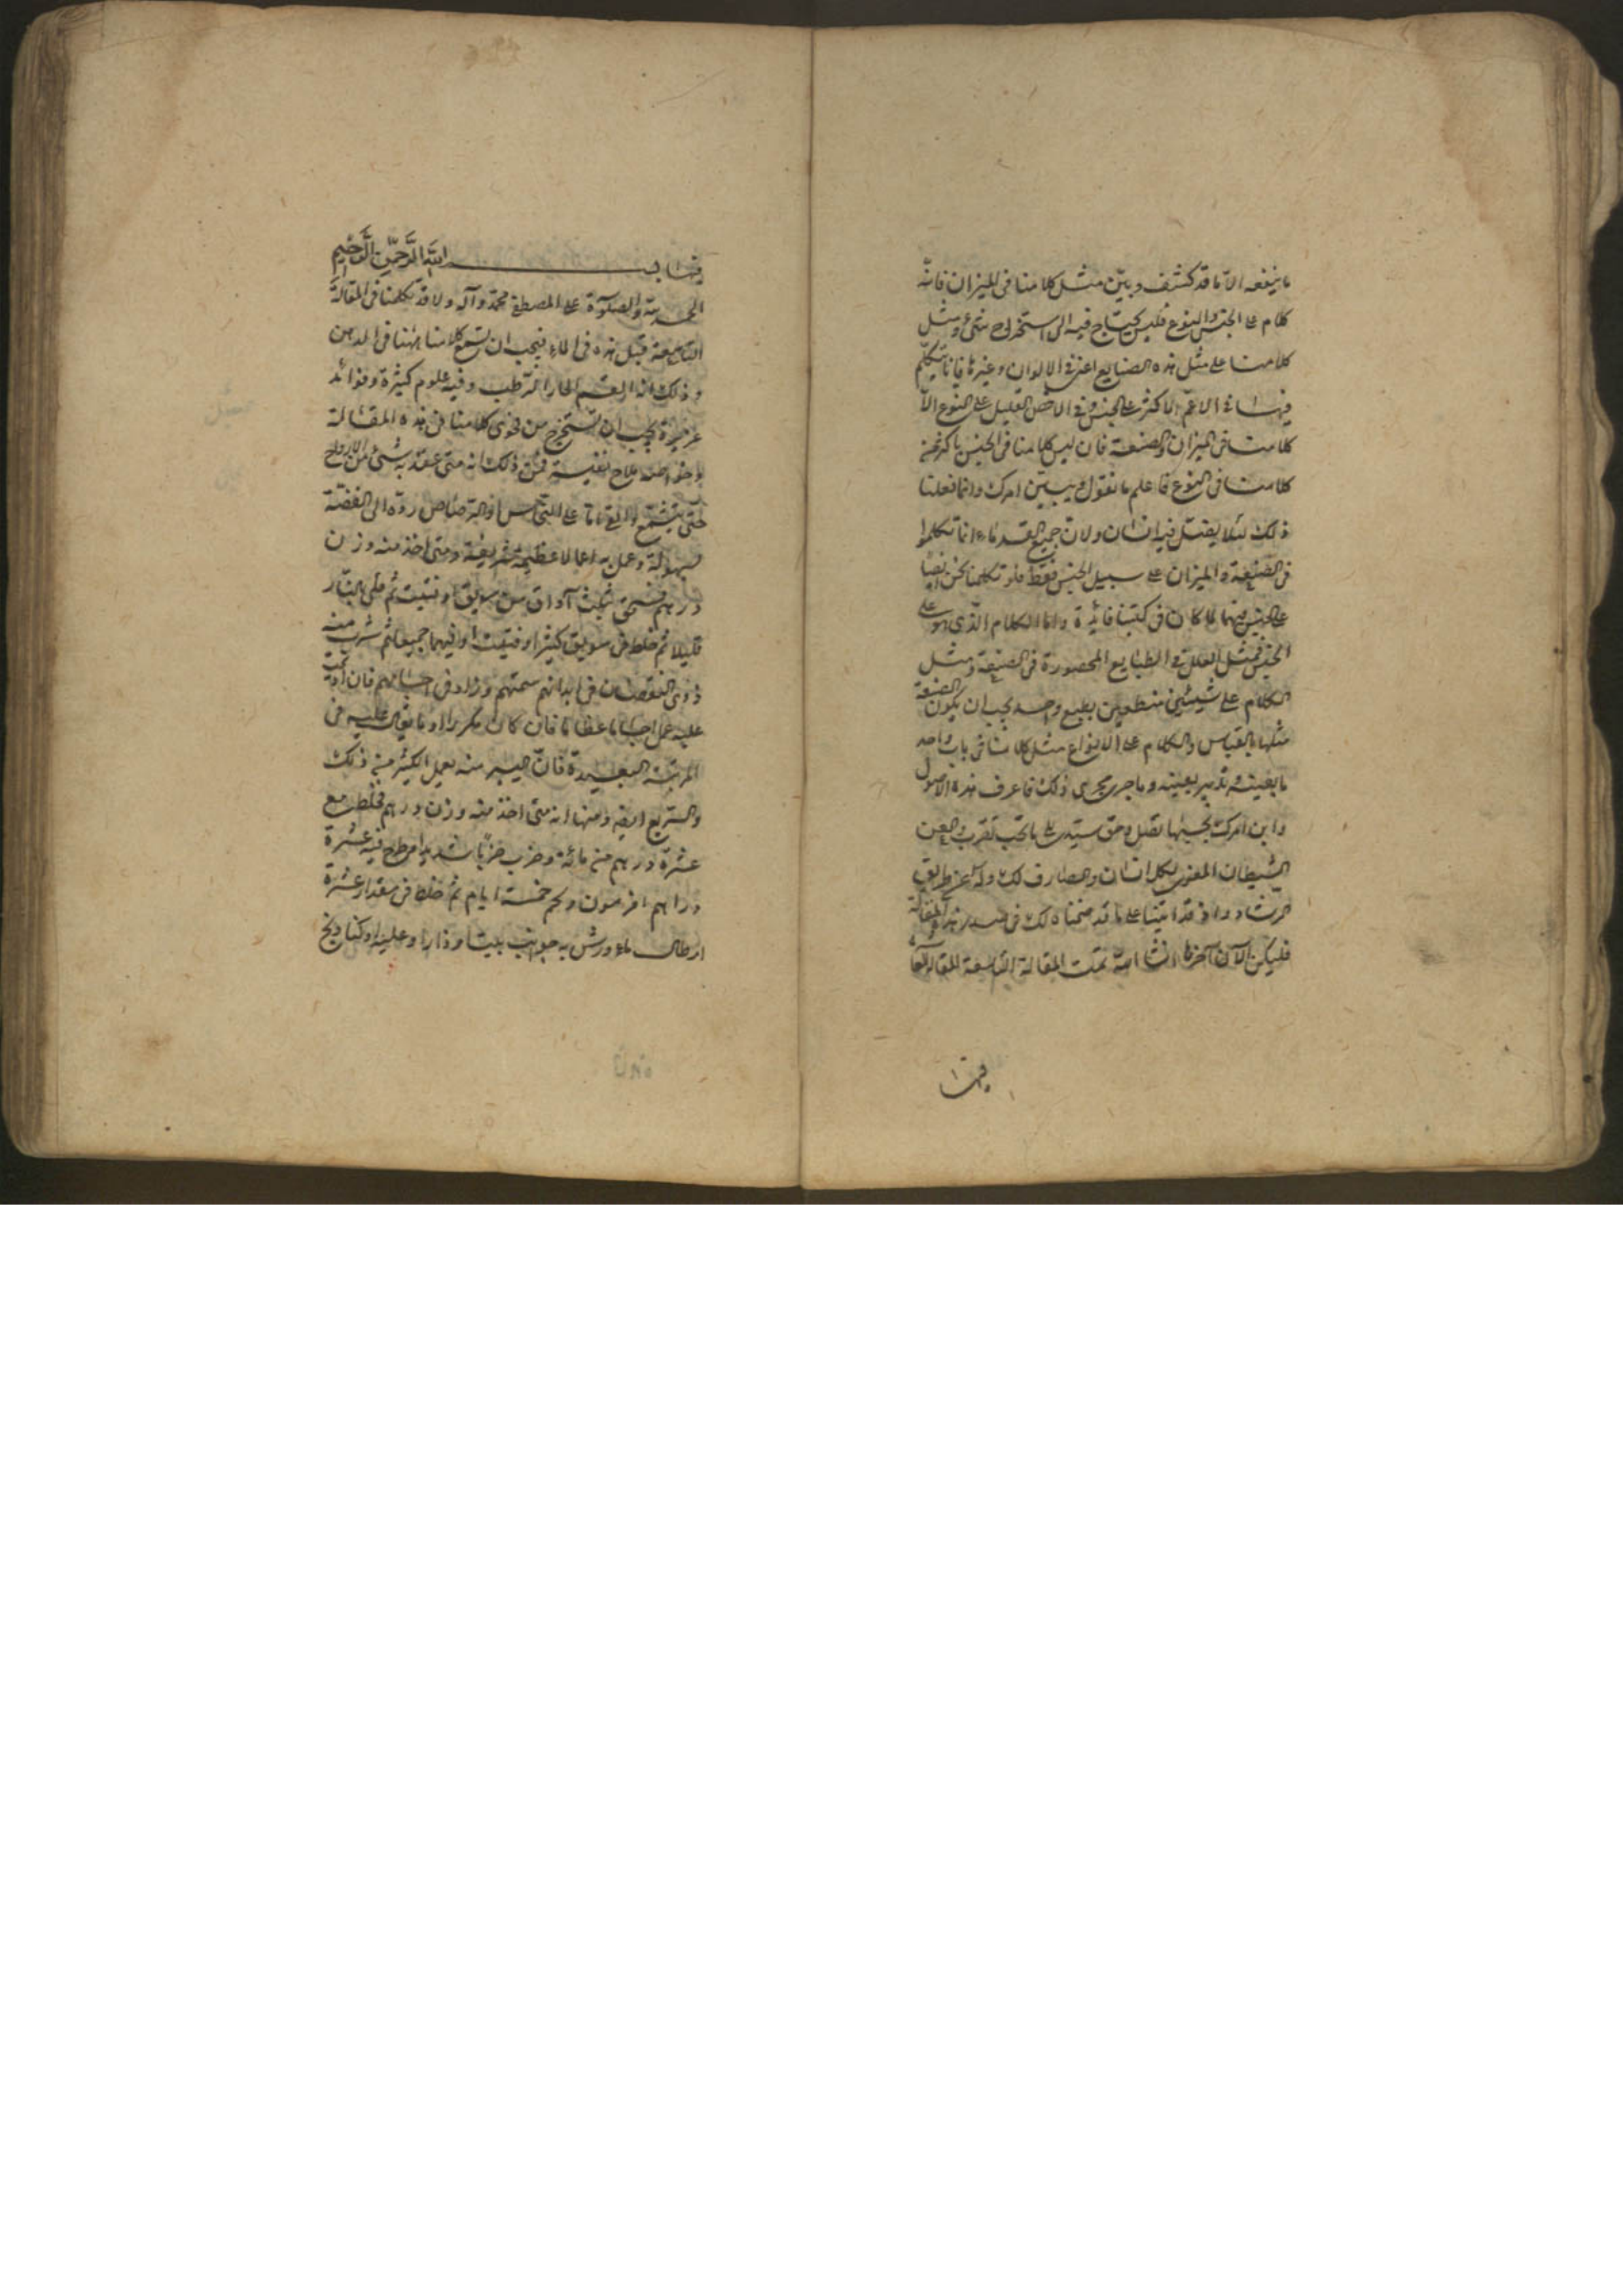 ما ينفعه الا ما قد كشف وبيّن مثل كلامنا فى الميزان فانّه
كلام على الجنس والنوع فليس يحتاج فيه الى استخراج شىء ومثل
كلامنا على مثل هذه الصنايع اعنى فى الالوان وغيرها فاننا نتكلّم
فيها فى الاعمّ الاكثر على الجنس وفى الاخص القليل على النوع الّا
كلامنا فى الميزان والصنعة فان ليس كلامنا فى الجنس باكثر من
كلامنا فى النوع فاعلم ما نقول يبين امرك وانما فعلنا
ذلك لئلا يقتل فيه انسان ولان جميع القدماء انما تكلموا
فى الصنعة والميزان على سبيل الجنس فقط فلو تكلمنا نحن ايضا
على الجنس فيهما لما كان فى كتبنا فائدة واما الكلام الذى هو على
الجنس فمثل العلل والطبايع المحصورة فى الصنعة ومثل
الكلام على شيئين بطبع واحد يجب ان يكون الصنعة
مثلها بالقياس والكلام على الانواع مثل كلامنا فى باب واحد
ما بعينه وتدبير بعينه وما جرى مجرى ذلك فاعرف هذه الاصول
وابن امرك بحسبها تصل وحق سيّدى الى ما تحب تقرب والعن
الشيطان المغوى لكل انسان والصارف لك وله عن طريق
الرشاد واذ قد اتينا على ما قد ضمنّاه لك فى صدر هذه المقالة
فليكن الآن آخرها انشا الله تمت المقالة التاسعة المقالة العا
فيها
فيها بسم الله الرّحمن الرّحيم
الحمد لله والصلوة على المصطفى محمد وآله ولا قد تكلمنا فى المقالة
التاسعة قبل هذه فى الماء فيجب ان نسمع كلامنا ههنا فى الدهن
وذلك انه القسم الحار الرطب وفيه علوم كثيرة وفوائد
غزيرة يجب ان تستخرج من فحوى كلامنا فى هذه المقالة
نفيسة فمن ذلك انه متى عقد به شىء من الارواح
حتى يتشمع والقى على النحاس او الرصاص ردّه الى الفضة
بسهولة وعمل به اعمالا عظيمة شريفة ومتى اخذ منه وزن
درهم فسحق بثلث آواق من سويق او فتيت ثم قلى بالنار
قليلا ثم خلط فى سويق كثير او فتيت او فيهما جميعا ثم شرب منه
ذوى النقصان فى ابدانهم سمنهم وزاد فى اجسامهم فان
عليه عمل اجساما عظاما فان كان مكررا او ما بقى عليه فى
المرتبة البعيدة فان اليسير منه يعمل الكثير من ذلك
والسريع ايضا ومنها انه متى اخذ منه وزن درهم فخلط مع
عشرة دراهم من مائه وضرب ضربا شديدا وطرح فيه عشرة
دراهم افربيون وحكم خمسة ايام ثم خلط فى مقدار عشرة
ارطال ماء ورش به جوانب بيتا ودارا وعلية او كنادج